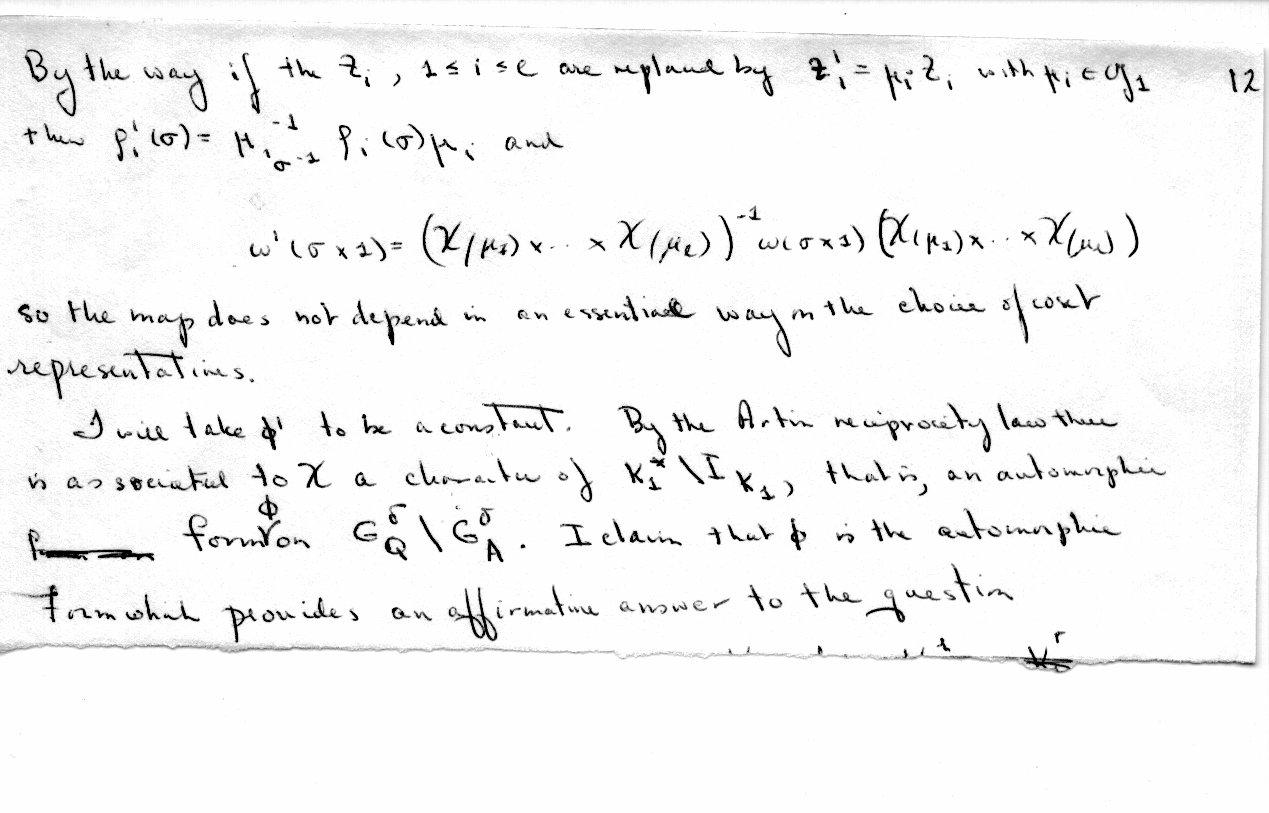 By the way if the z_i, 1 ≤ i ≤ ℓ are replaced by z_i' = μ_i z_i with μ_i ∈ 𝔤_1 12
then ρ_i'(σ) = μ_{i_{σ^{-1}}}^{-1} ρ_i(σ) μ_i and
ω'(σ × 1) = (χ(μ_1) × ... × χ(μ_ℓ))^{-1} ω(σ × 1) (χ(μ_1) × ... × χ(μ_ℓ))
so the map does not depend in an essential way on the choice of coset
representatives.
I will take φ' to be a constant. By the Artin reciprocity law there
is associated to χ a character of K_1^* \ I_{K_1}, that is, an automorphic
form φ on G_Q^σ \ G_A^σ. I claim that φ is the automorphic
form which provides an affirmative answer to the question